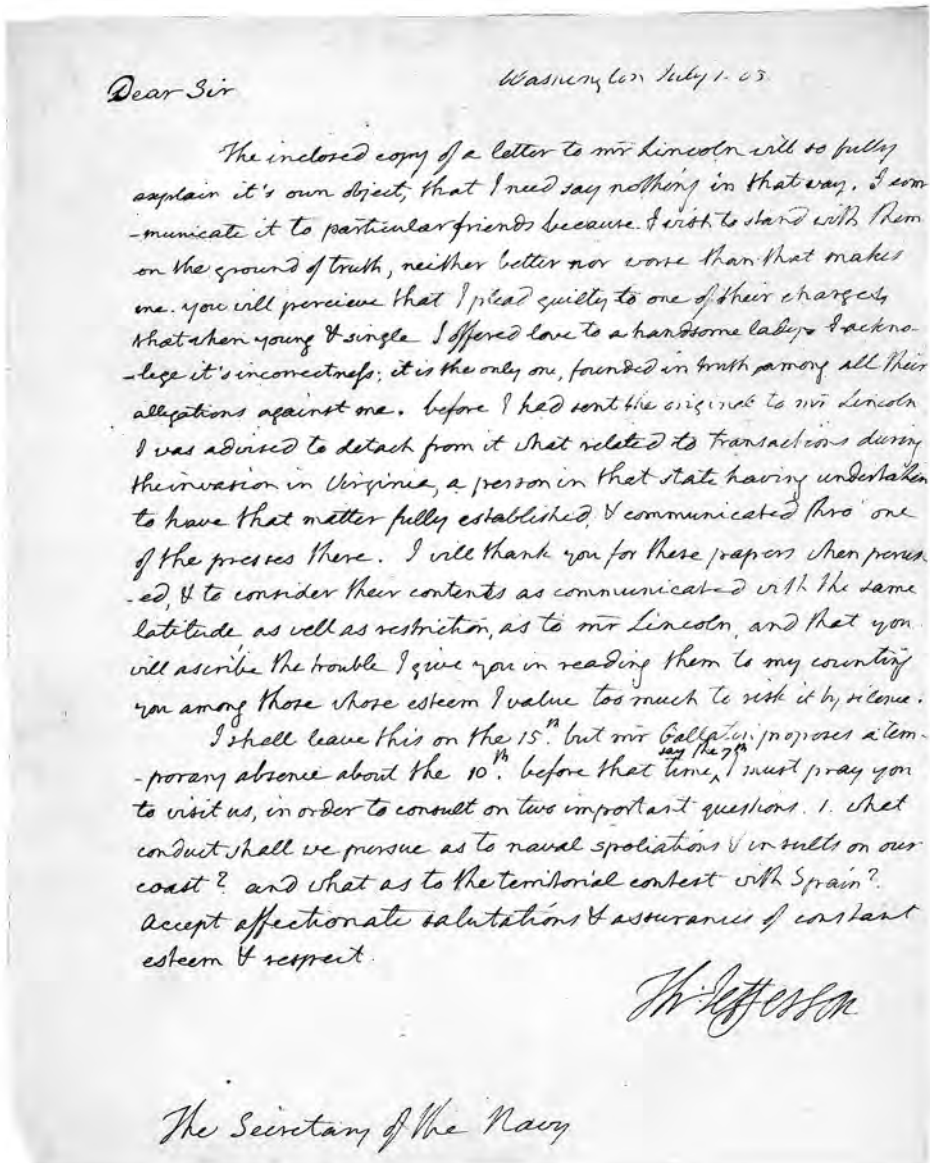 Dear Sir
Washington July 1. 05.
The inclosed copy of a letter to mr Lincoln will so fully
explain it's own object, that I need say nothing in that way. I com
-municate it to particular friends because I wish to stand with them
on the ground of truth, neither better nor worse than that makes
me. you will percieve that I plead guilty to one of their charges,
that when young & single I offered love to a handsome lady. I ackno-
-lege it's incorrectness; it is the only one, founded in truth among all their
allegations against me. before I had sent the original to mr Lincoln
I was advised to detach from it what related to transactions during
the invasion in Virginia, a person in that state having undertaken
to have that matter fully established, & communicated thro' one
of the presses there. I will thank you for these papers when perus
-ed, & to consider their contents as communicated with the same
latitude, as well as restriction, as to mr Lincoln, and that you
will ascribe the trouble I give you in reading them to my counting
you among those whose esteem I value too much to risk it by silence.
I shall leave this on the 15th. but mr Gallatin proposes a tem-
say the 7th
-porary absence about the 10th. before that time, ^ I must pray you
to visit us, in order to consult on two important questions. 1. what
conduct shall we pursue as to naval spoliations & insults on our
coast? and what as to the territorial contest with Spain?
Accept affectionate salutations & assurances of constant
esteem & respect.
Th: Jefferson
The Secretary of the Navy